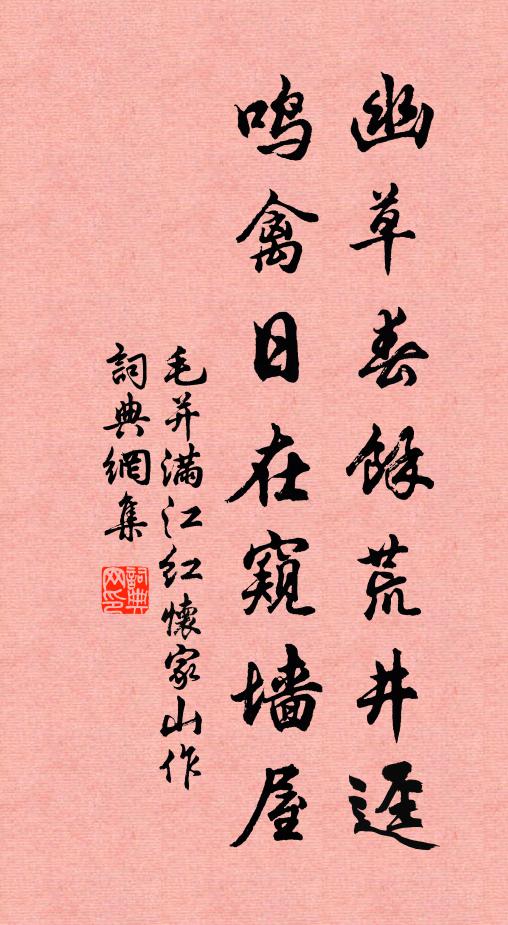 幽草春餘荒井逕
鸣禽日在窺墙屋
毛并满江红懷家山作
詞典網集
詞典网印